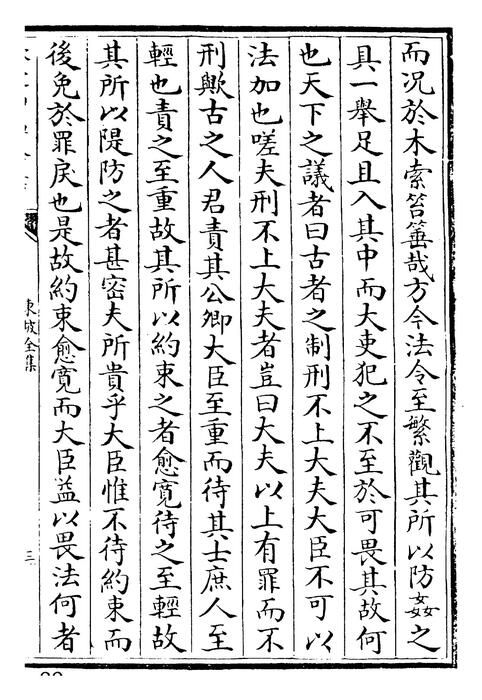 而况於木索笞箠哉方今法令至繁觀其所以防姦之
具一舉足且入其中而大吏犯之不至於可畏其故何
也天下之議者曰古者之制刑不上大夫大臣不可以
法加也嗟夫刑不上大夫者豈曰大夫以上有罪而不
刑歟古之人君責其公卿大臣至重而待其士庶人至
輕也責之至重故其所以約束之者愈寛待之至輕故
其所以隄防之者甚密夫所貴乎大臣惟不待約束而
後免於罪戾也是故約束愈寛而大臣益以畏法何者
東坡全集
三